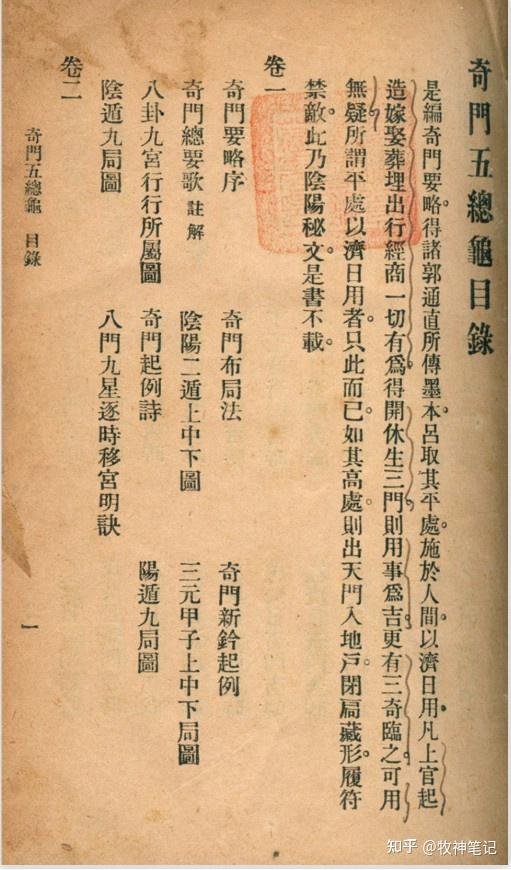 奇門五總龜目錄
是編奇門要略。得諸郭通直所傳墨本。呂取其平處。施於人間。以濟日用。凡上官起
造嫁娶葬埋出行經商一切有爲。得開休生三門。則用事爲吉。更有三奇臨之。可用
無疑。所謂平處以濟日用者。只此而已。如其高處。則出天門入地戶。閉扃藏形。履符
禁敵。此乃陰陽秘文。是書不載。
卷一
奇門要略序 奇門布局法 奇門新鈐起例
奇門總要歌 註解 陰陽二遁上中下圖 三元甲子上中下局圖
八卦九宮行行所屬圖 奇門起例詩 陽遁九局圖
陰遁九局圖 八門九星逐時移宮明訣
卷二
奇門五總龜 目錄 一
知乎 @牧神笔记